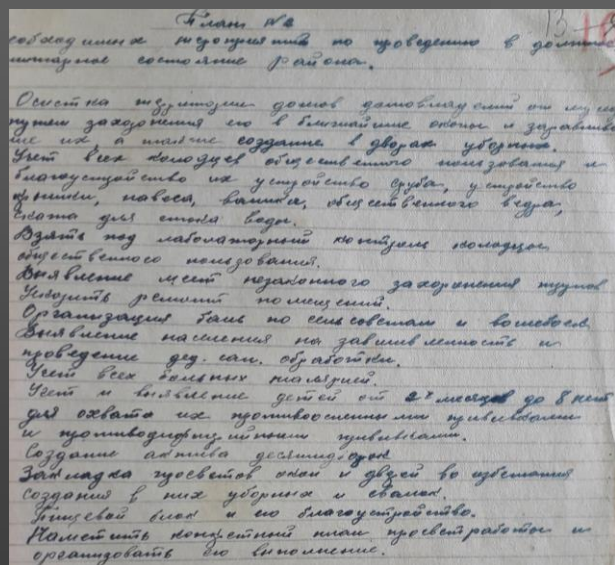 План №
необходимых мероприятий по проведению в должное
санитарное состояние района.
Очистка территории домов домовладений от мусора
путем захоронения его в ближайшие окопы и заравнива
ние их, а также создание в дворах уборных.
Учет всех колодцев общественного пользования и
благоустройство их устройство сруба, устройство
крышки, навеса, валика, общественного ведра,
ската для стока воды.
Взять под лабораторный контроль колодцы
общественного пользования.
Выявление мест незаконного захоронения трупов
Ускорить ремонт помещений.
Организация бань по сельсоветам и вошебоек
Выявление населения на завшивленность и
проведение дез. сан. обработки.
Учет всех больных малярией.
Учет и выявление детей от 2х месяцев до 8 лет
для охвата их противооспенными прививками
и противодифтерийными прививками.
Создание актива десятидворок
Закладка просветов окон и дверей во избежания
создания в них уборных и свалок.
Пищевой блок и его благоустройство.
Наметить конкретный план просветработы и
организовать его выполнение.